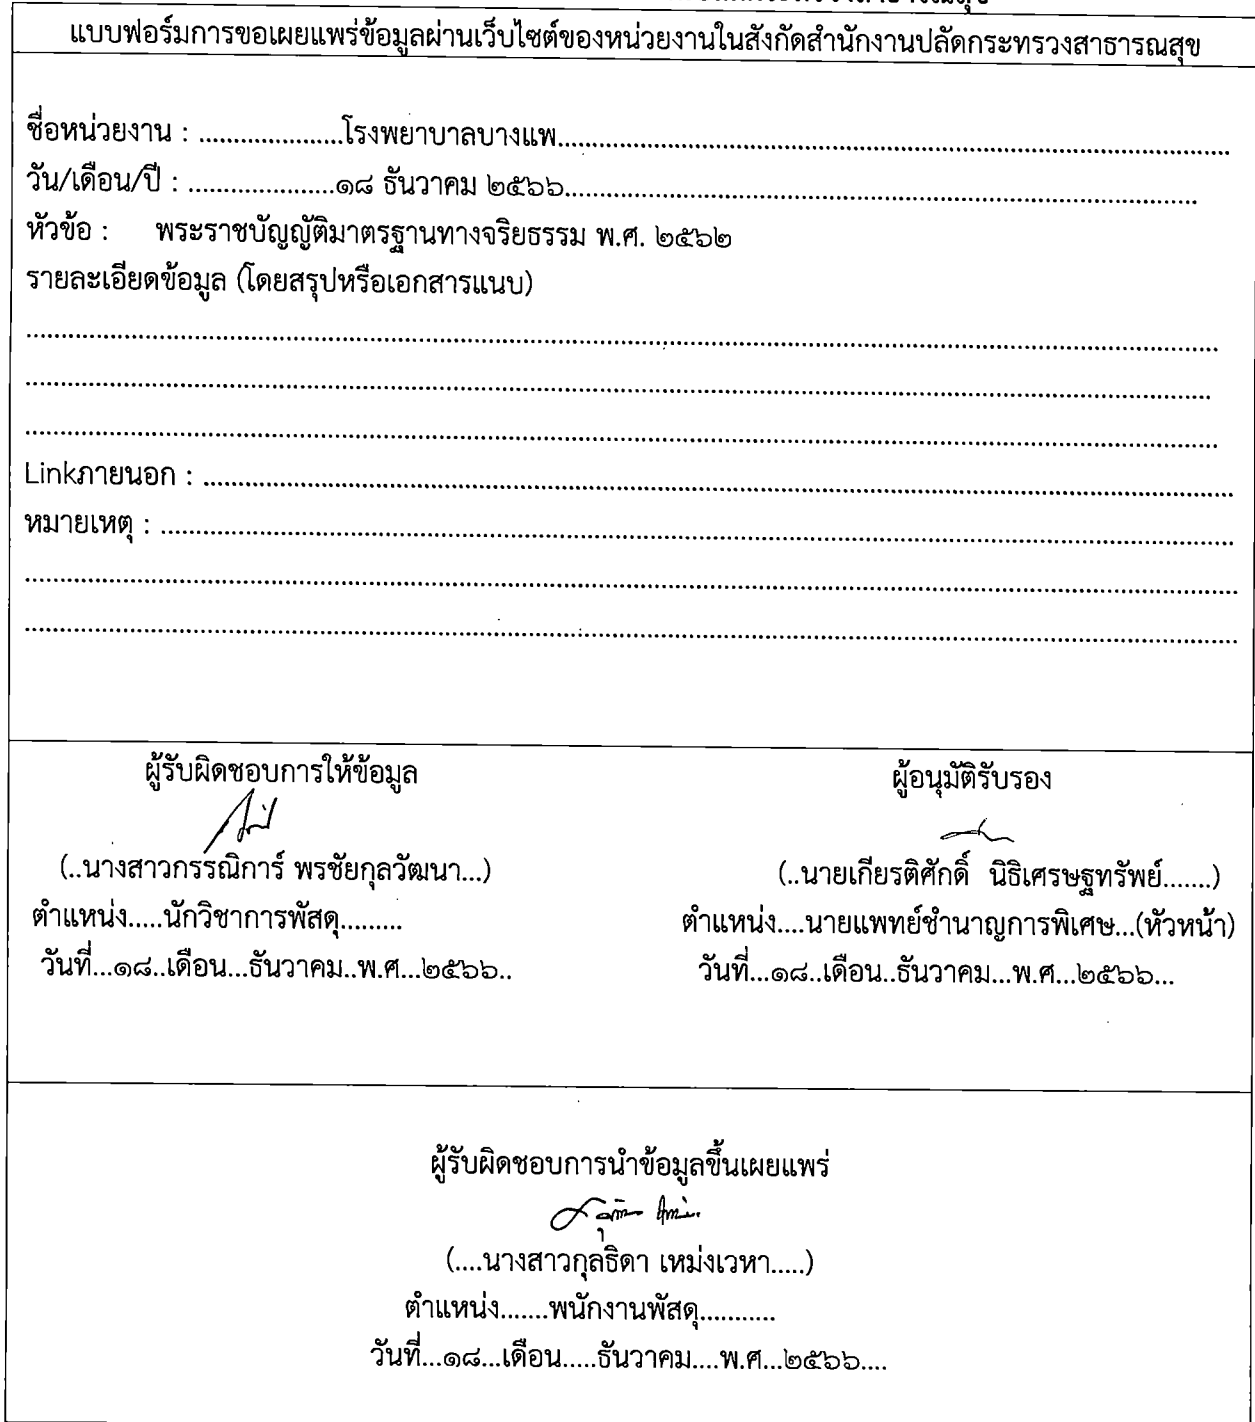 แบบฟอร์มการขอเผยแพร่ข้อมูลผ่านเว็บไซต์ของหน่วยงานในสังกัดสำนักงานปลัดกระทรวงสาธารณสุข
ชื่อหน่วยงาน : ....................โรงพยาบาลบางแพ................................................................................................
วัน/เดือน/ปี : .....................๑๘ ธันวาคม ๒๕๖๖..........................................................................................
หัวข้อ : พระราชบัญญัติมาตรฐานทางจริยธรรม พ.ศ. ๒๕๖๒
รายละเอียดข้อมูล (โดยสรุปหรือเอกสารแนบ)
..........................................................................................................................................................................
..........................................................................................................................................................................
..........................................................................................................................................................................
Linkภายนอก : ...................................................................................................................................................
หมายเหตุ : .........................................................................................................................................................
..........................................................................................................................................................................
..........................................................................................................................................................................
ผู้รับผิดชอบการให้ข้อมูล
(..นางสาวกรรณิการ์ พรชัยกุลวัฒนา...)
ตำแหน่ง.....นักวิชาการพัสดุ.........
วันที่...๑๘..เดือน...ธันวาคม..พ.ศ...๒๕๖๖..
ผู้อนุมัติรับรอง
(..นายเกียรติศักดิ์ นิธิเศรษฐทรัพย์.......)
ตำแหน่ง....นายแพทย์ชำนาญการพิเศษ...(หัวหน้า)
วันที่...๑๘..เดือน..ธันวาคม...พ.ศ...๒๕๖๖...
ผู้รับผิดชอบการนำข้อมูลขึ้นเผยแพร่
(....นางสาวกุลธิดา เหม่งเวหา.....)
ตำแหน่ง.......พนักงานพัสดุ...........
วันที่...๑๘...เดือน.....ธันวาคม....พ.ศ...๒๕๖๖....